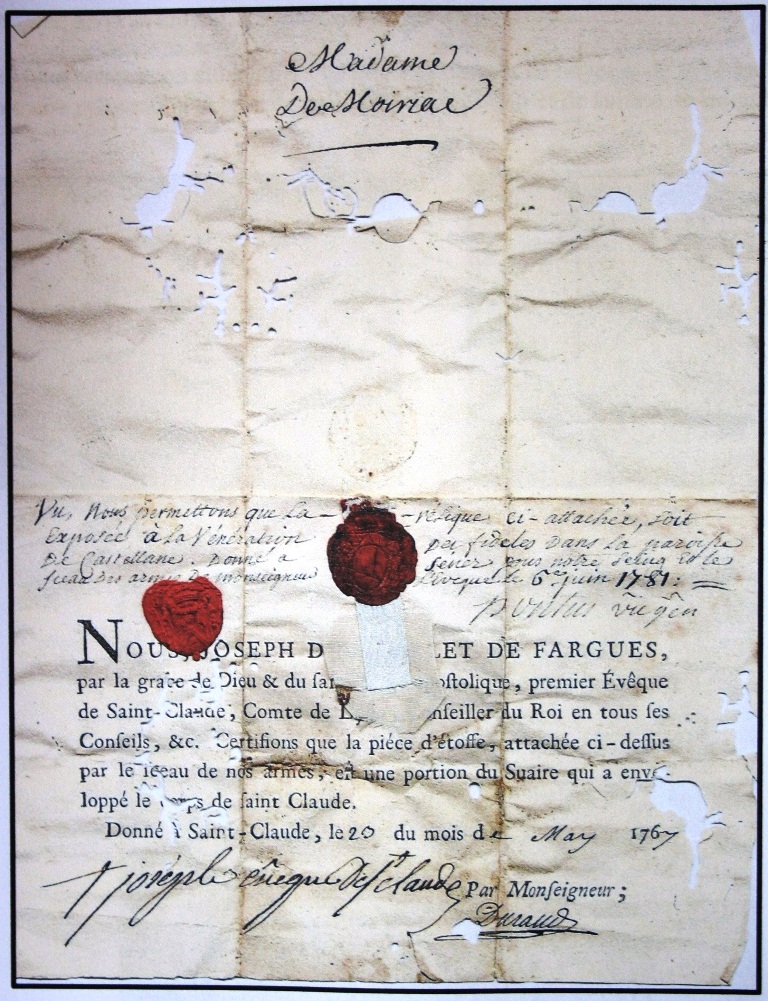 Madame
De Moiriac
Vu, Nous permettons que la - relique ci-attachée, soit
Exposée à la Vénération des fideles Dans la paroisse
De Castellane. Donné a Senez sous notre seing et le
sceau des armes de monseigneur L'eveque le 6e juin 1781:
vic gen
NOUS, JOSEPH D LET DE FARGUES,
par la grace de Dieu & du ſai oſtolique, premier Évêque
de Saint-Claude, Comte de L nſeiller du Roi en tous ſes
Conſeils, &c. Certifions que la piéce d'étoffe, attachée ci-deſſus
par le ſceau de nos armes, eſt une portion du Suaire qui a enve-
loppé le corps de ſaint Claude.
Donné à Saint-Claude, le 20 du mois de May 1767
† joseph évêque De St claude Par Monſeigneur;
Durand